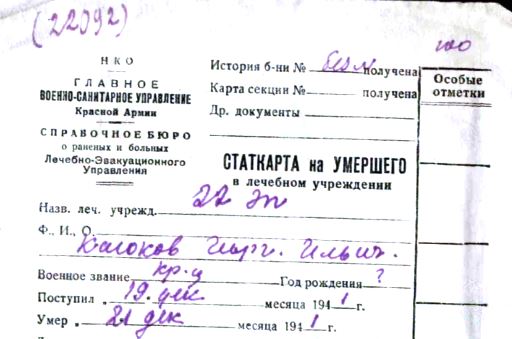 (22092)
НКО
ГЛАВНОЕ
ВОЕННО-САНИТАРНОЕ УПРАВЛЕНИЕ
Красной Армии
СПРАВОЧНОЕ БЮРО
о раненых и больных
Лечебно-Эвакуационного
Управления
История б-ни № без № получена
Карта секции № получена
Др. документы
Особые
отметки
СТАТКАРТА на УМЕРШЕГО
в лечебном учреждении
Назв. леч. учрежд. 22 эп
Ф., И., О.
Георг. Ильич.
Военное звание кр-ц Год рождения ?
Поступил „ 19 дек месяца 1941 г.
Умер „ 21 дек месяца 1941 г.